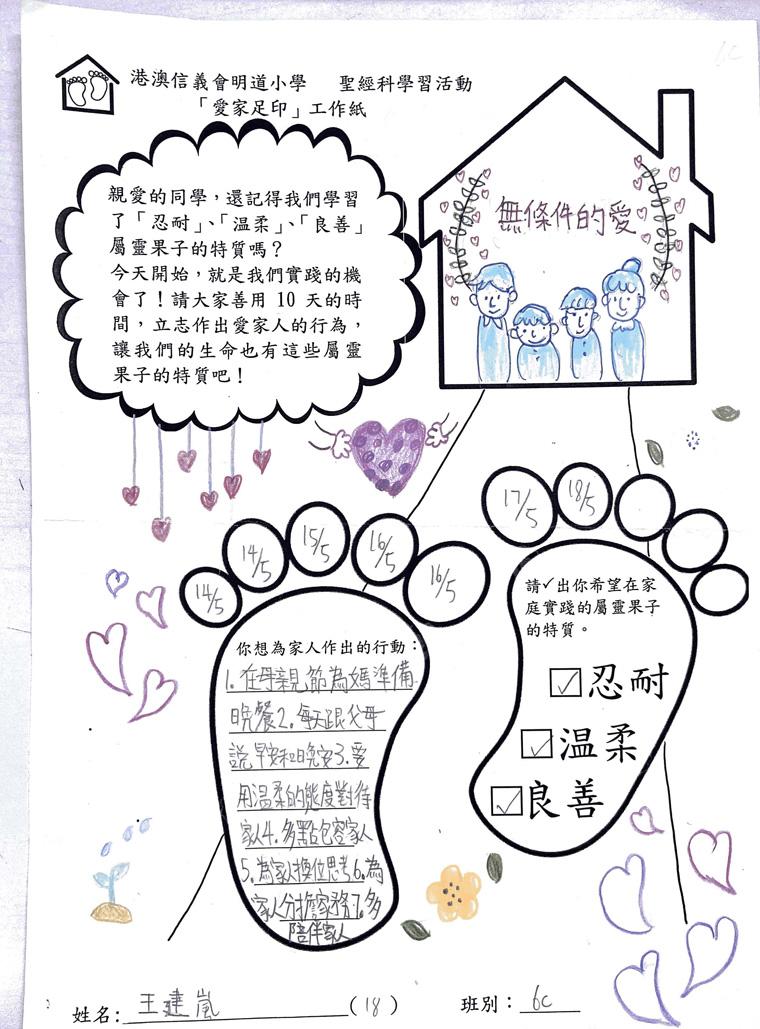 6C
港澳信義會明道小學 聖經科學習活動
「愛家足印」工作紙
親愛的同學，還記得我們學習
了「忍耐」、「温柔」、「良善」
屬靈果子的特質嗎？
今天開始，就是我們實踐的機
會了！請大家善用 10 天的時
間，立志作出愛家人的行為，
讓我們的生命也有這些屬靈
果子的特質吧！
無條件的愛
14/5
14/5
15/5
16/5
16/5
17/5
18/5
你想為家人作出的行動：
1. 在母親節為媽準備
晚餐2. 每天跟父母
說早安和晚安3. 要
用溫柔的態度對待
家人4. 多點包容家人
5. 為家人換位思考6. 為
家人分擔家務7. 多
陪伴家人
請✓出你希望在家
庭實踐的屬靈果子
的特質。
☑忍耐
☑温柔
☑良善
姓名：王建嵐（18） 班別：6C